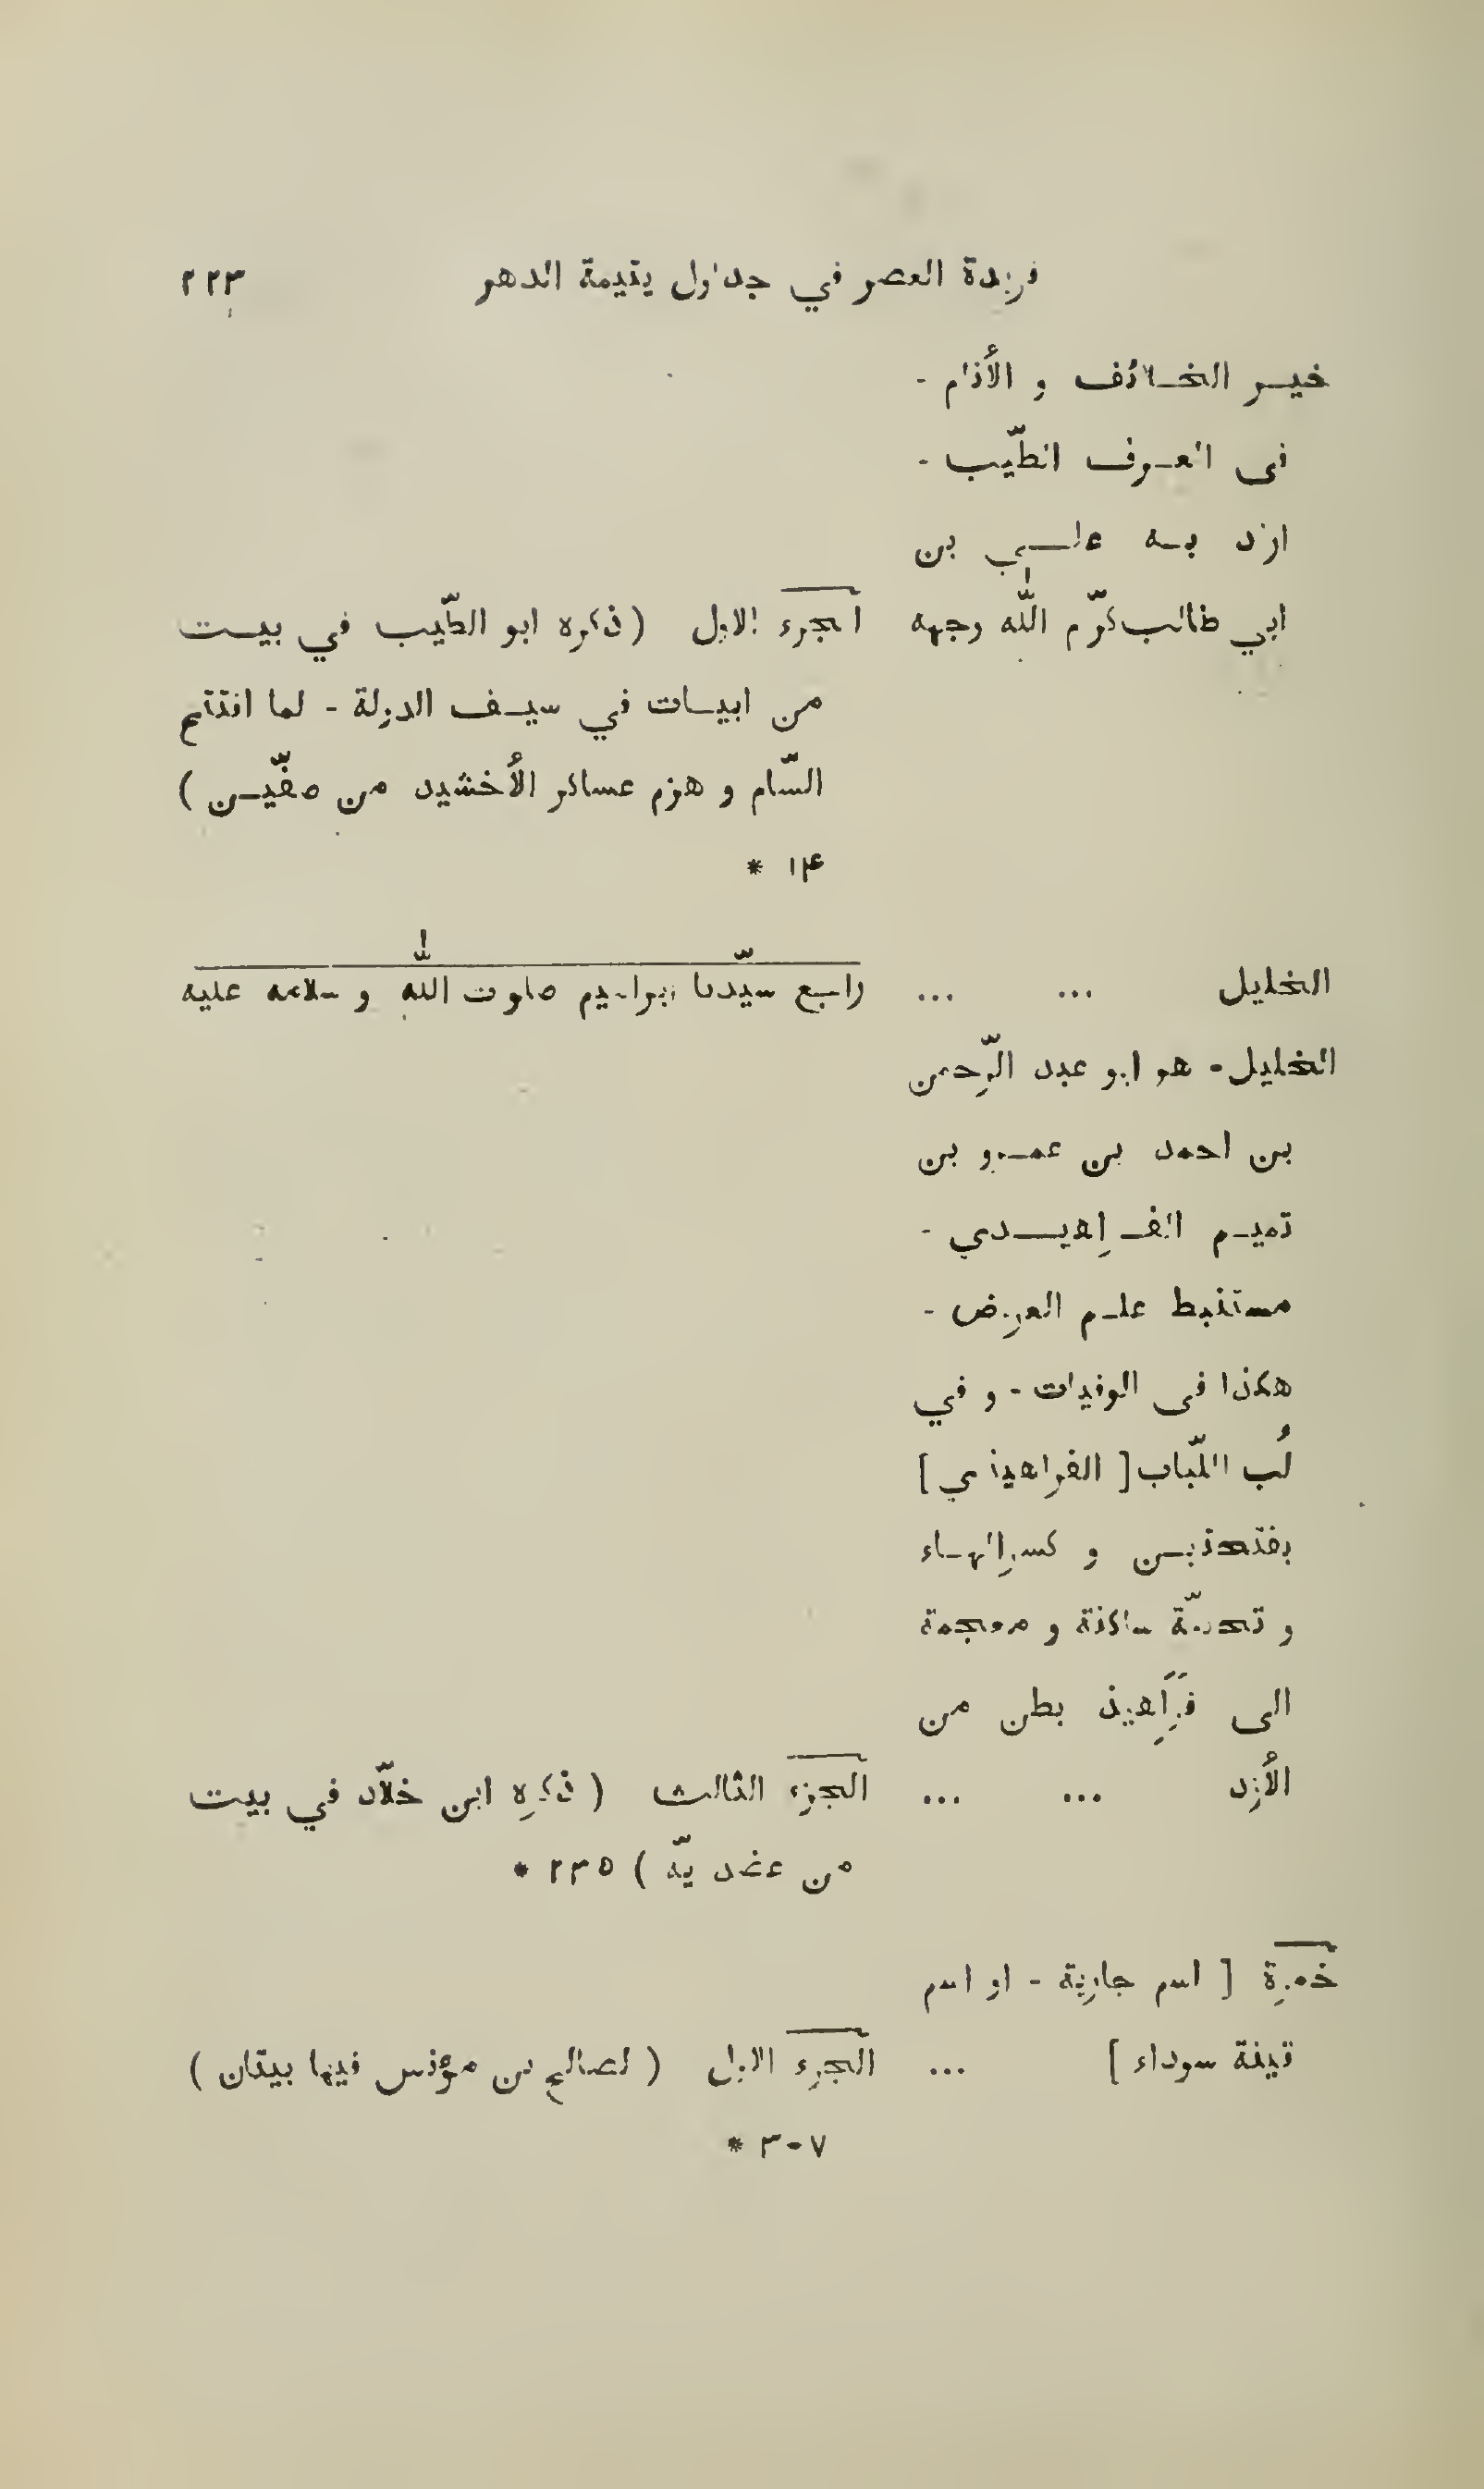 فريدة العصر في جداول يتيمة الدهر ٢٢٣
خير الخلائف و الأنام -
فى العرف الطّيب -
اراد به علي بن
ابي طالب كرّم اللّٰه وجهه الجزء الاول ( ذكره ابو الطّيب في بيت
من ابيات في سيف الدولة - لما افتتح
الشّام و هزم عساكر الأُخشيد من صفّين )
١۴ *
الخليل ... ... راجع سيّدنا ابراهيم صلوت اللّٰه و سلامه عليه
الخليل - هو ابو عبد الرّحمن
بن احمد بن عمرو بن
تميم الفراهيدي -
مستنبط علم العروض -
هكذا فى الوفيات - و في
لُب اللّباب [ الفراهيذي ]
بفتحتين و كسر الهاء
و تحتيّة ساكنة و معجمة
الى فَرَاهِيذ بطن من
الأُزد ... ... الجزء الثالث ( ذكره ابن خلّاد في بيت
من عضد يّة ) ٢٣٥ *
خمرة [ اسم جارية - او اسم
قينة سوداء ] ... الجزء الاول ( لصالح بن مؤنس فيها بيتان )
٣٠٧ *